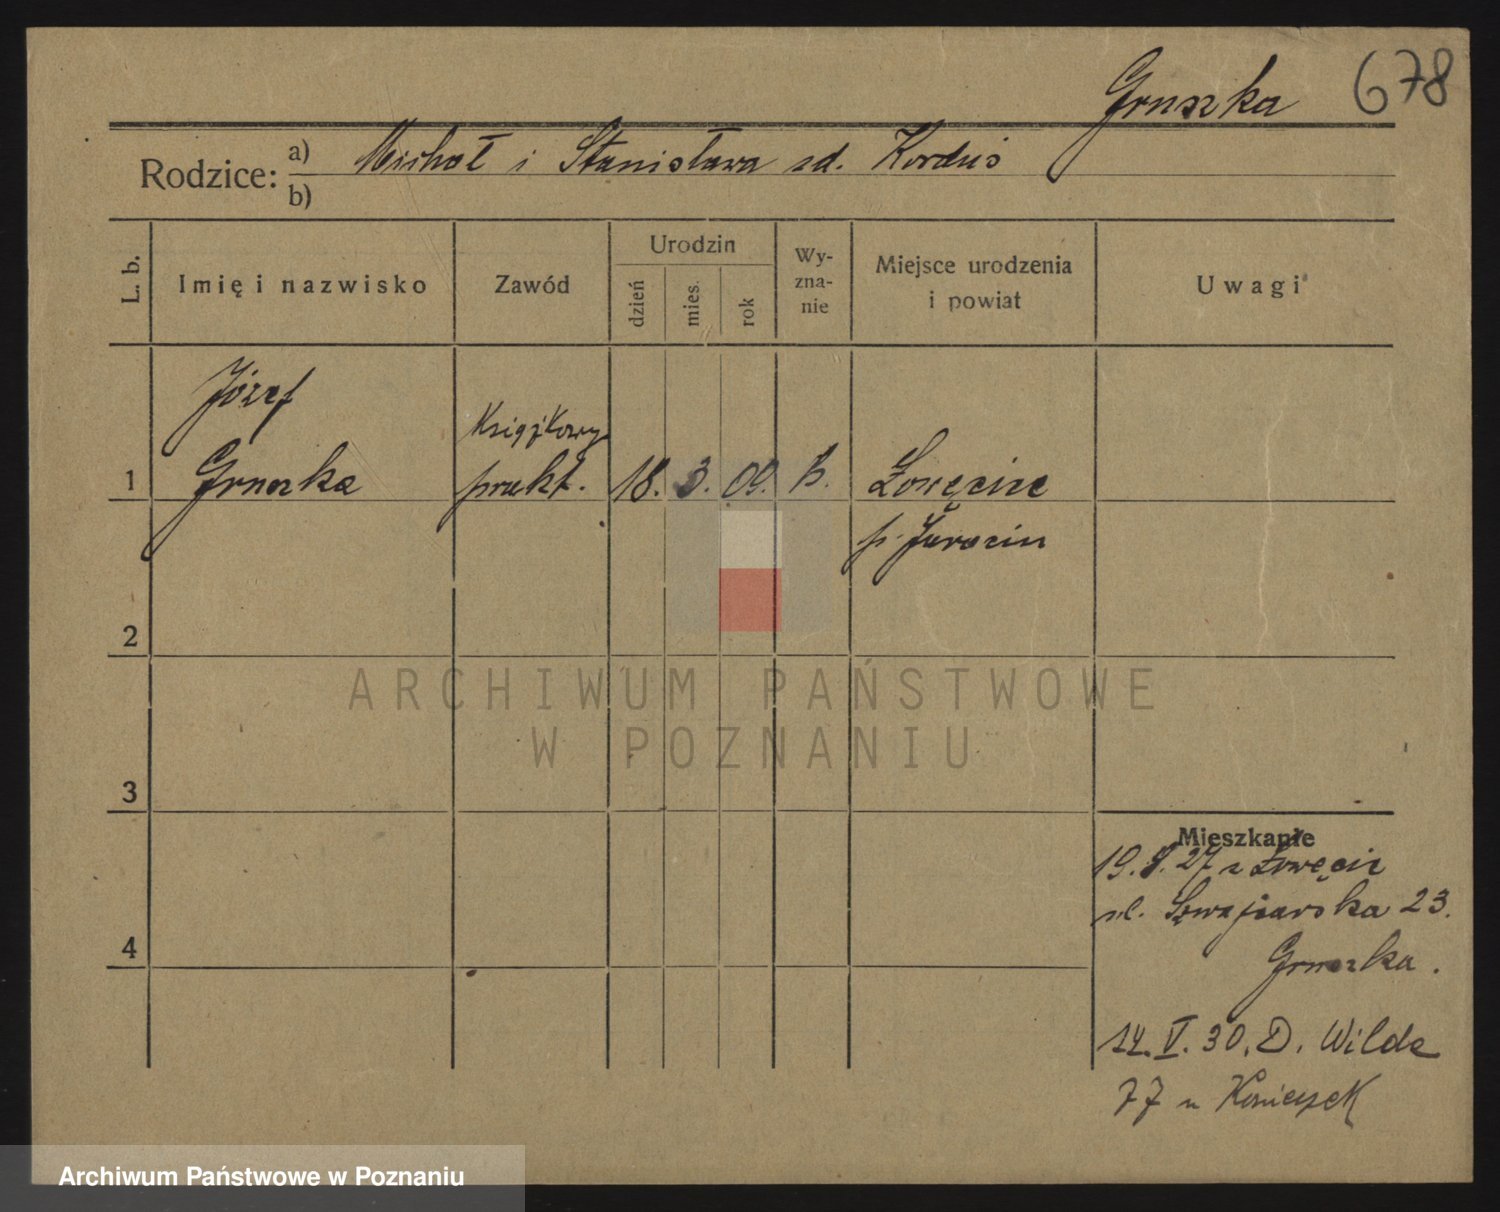 Gruszka 678
Rodzice: a) Michał i Stanisława zd. Korduś
b)
L. b. Imię i nazwisko Zawód Urodzin dzień mies. rok Wy-zna-nie Miejsce urodzenia i powiat Uwagi
Józef
Książkowy
1 Gruszka prakt. 18. 3. 09. k. Łowęcice
p. Jarocin
2
ARCHIWUM PAŃSTWOWE
W POZNANIU
3
Mieszkanie
19. 27 z Łowęcic
ul. Szwajcarska 23.
4
Gruszka.
14. V. 30. D. Wilda
77 u Konieczek
Archiwum Państwowe w Poznaniu